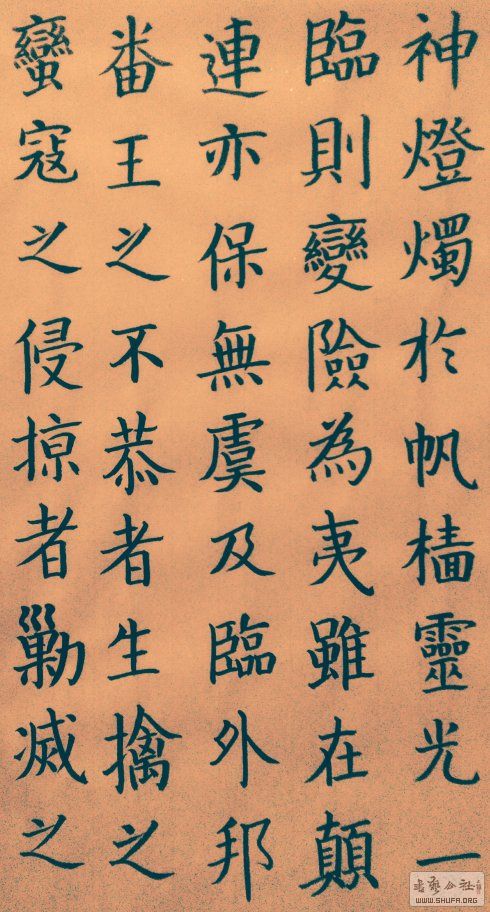 神燈燭於帆檣靈光一
臨則變險為夷雖在顛
連亦保無虞及臨外邦
番王之不恭者生擒之
蠻寇之侵掠者勦滅之
WWW.SHUFA.ORG